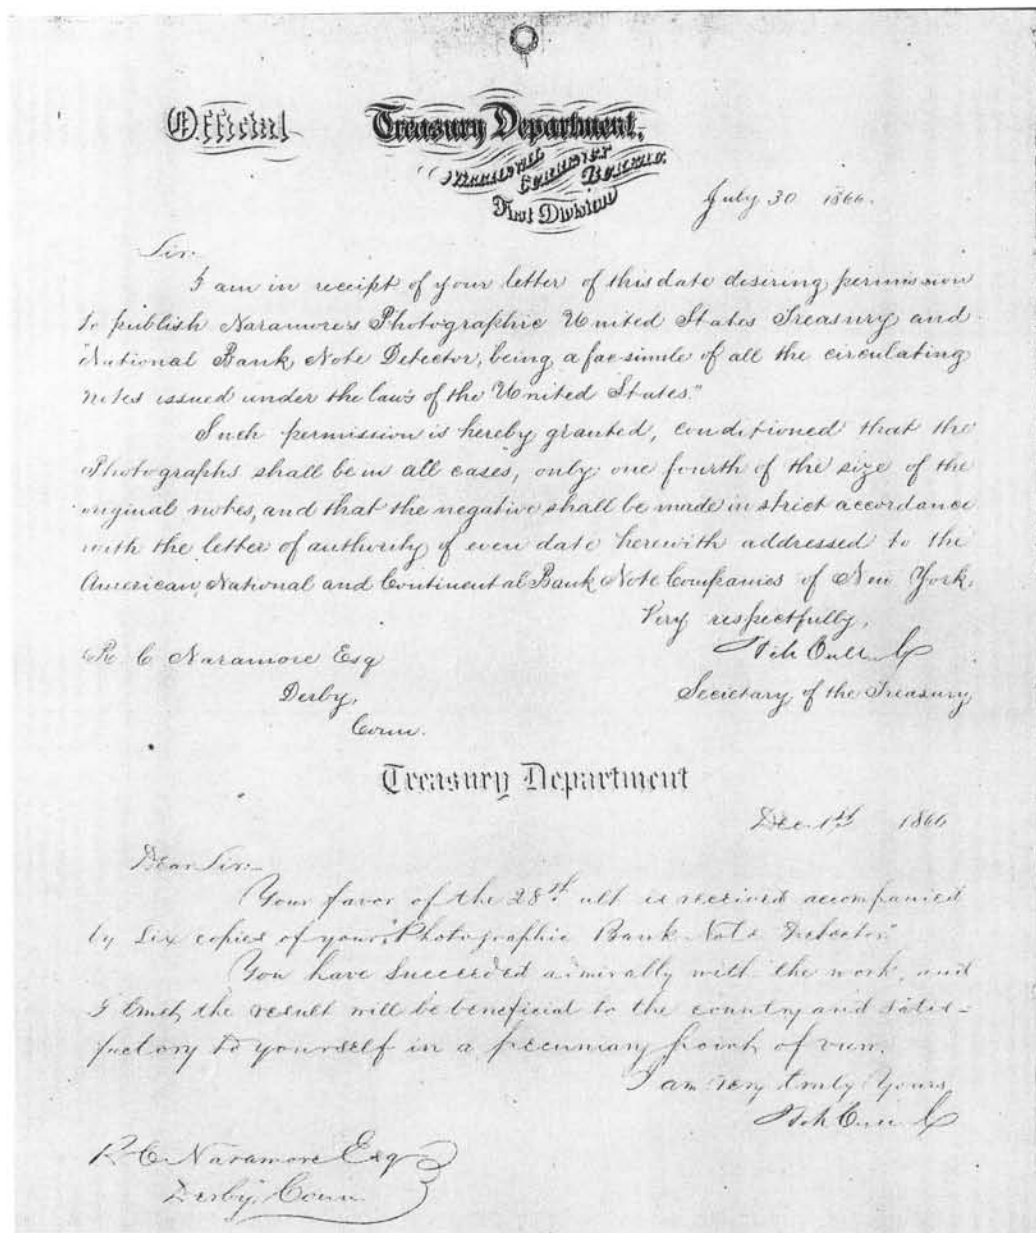 Official
Treasury Department,
National
Currency
Bureau.
First Division
July 30 1866.
Sir.
I am in receipt of your letter of this date desiring permission
to publish Naramore's Photographic United States Treasury and
National Bank Note Detector, being a fac-simile of all the circulating
notes issued under the laws of the United States."
Such permission is hereby granted, conditioned that the
Photographs shall be in all cases, only one fourth of the size of the
original notes, and that the negative shall be made in strict accordance
with the letter of authority of even date herewith addressed to the
American, National and Continental Bank Note Companies of New York.
Very respectfully,
R C Naramore Esq
Secretary of the Treasury
Derby,
Conn.
Treasury Department
Dec. 1st 1866
Dear Sir:-
Your favor of the 28th ult is received accompanied
by Six copies of your "Photographic Bank Note Detector."
You have succeeded admirally with the work, and
I trust the result will be beneficial to the country and satis-
factory to yourself in a pecuniary point of view.
I am very truly Yours
R. C. Naramore Esq
Derby, Conn.